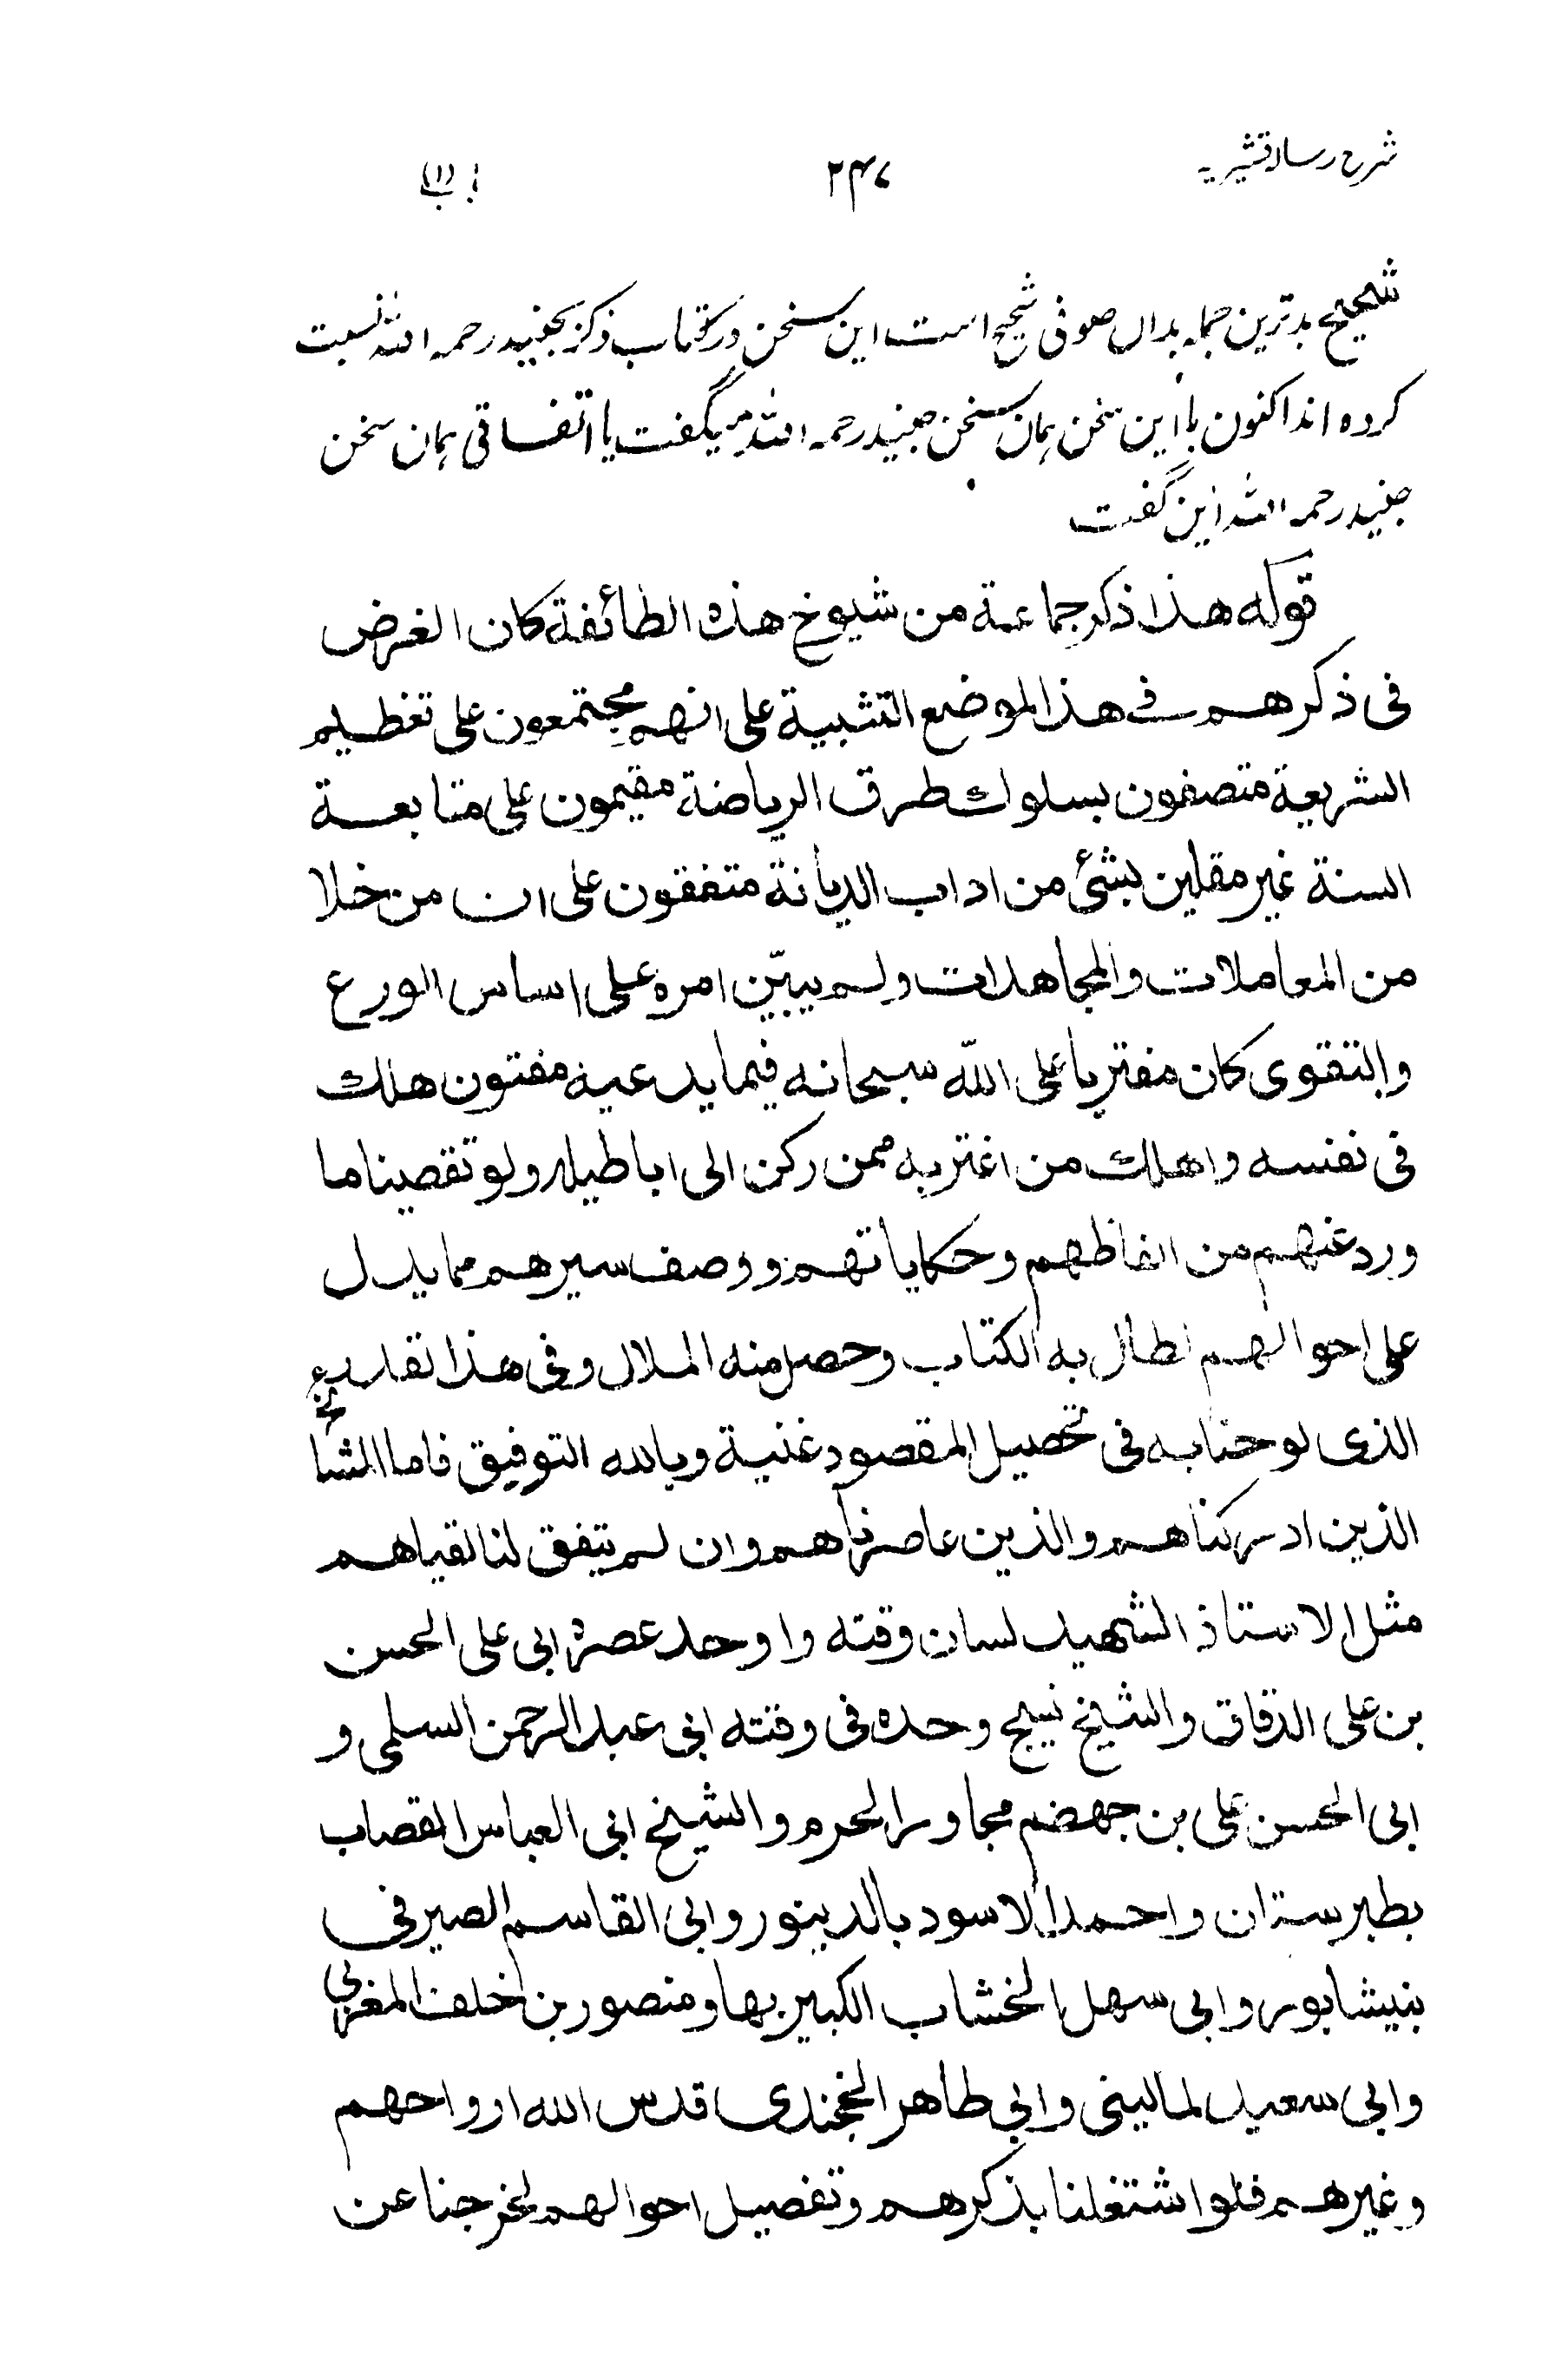 شرح رسالہ قشیریہ ۲۴۷ باب (۱)
شحیح بدترین جملہ بداں صوفی شحیح است این سخن در کتاب ذکر بجنید رحمہ اللہ نسبت
کردہ اند اکنون یا این سخن ہمان سخن جنید رحمہ اللہ میگفت یا اتفاقی ہمان سخن
جنید رحمہ اللہ این گفت
قوله هذا ذكر جماعة من شيوخ هذه الطائفة كان الغرض
فى ذكرهم فى هذا الموضع التنبيه على انهم مجتمعون على تعظيم
الشريعة متصفون بسلوك طرق الرياضة مقيمون على متابعة
السنة غير مقلين بشئ من اداب الديانة متفقون على ان من خلا
من المعاملات والمجاهدات ولم يبيّن امره على اساس الورع
والتقوى كان مفتريا على اللّه سبحانه فيما يدعيه مفتون هلك
فى نفسه واهلك من اغتر به ممن ركن الى اباطيله ولو تقصينا ما
ورد عنهم من الفاظهم وحكاياتهم ووصف سيرهم مما يدل
على احوالهم لطال به الكتاب وحصل منه الملال وفى هذا القدر
الذى لوحنا به فى تحصيل المقصود غنية وبالله التوفيق فاما المشائخ
الذين ادركناهم والذين عاصرناهم وان لم يتفق لنا لقياهم
مثل الاستاذ الشهيد لسان وقته واوحد عصره ابى على الحسن
بن على الدقاق والشيخ نسيج وحده فى وقته ابى عبد الرحمن السلمى و
ابى الحسن على بن جهضم مجاور الحرم والشيخ ابى العباس القصاب
بطبرستان واحمد الاسود بالدينور وابى القاسم الصيرفى
بنيشابور وابى سهل الخشاب الكبير بها ومنصور بن خلف المغربى
وابى سعيد الماليني وابى طاهر الخجندى قدس الله ارواحهم
وغيرهم فلو اشتغلنا بذكرهم وتفصيل احوالهم لخرجنا عن